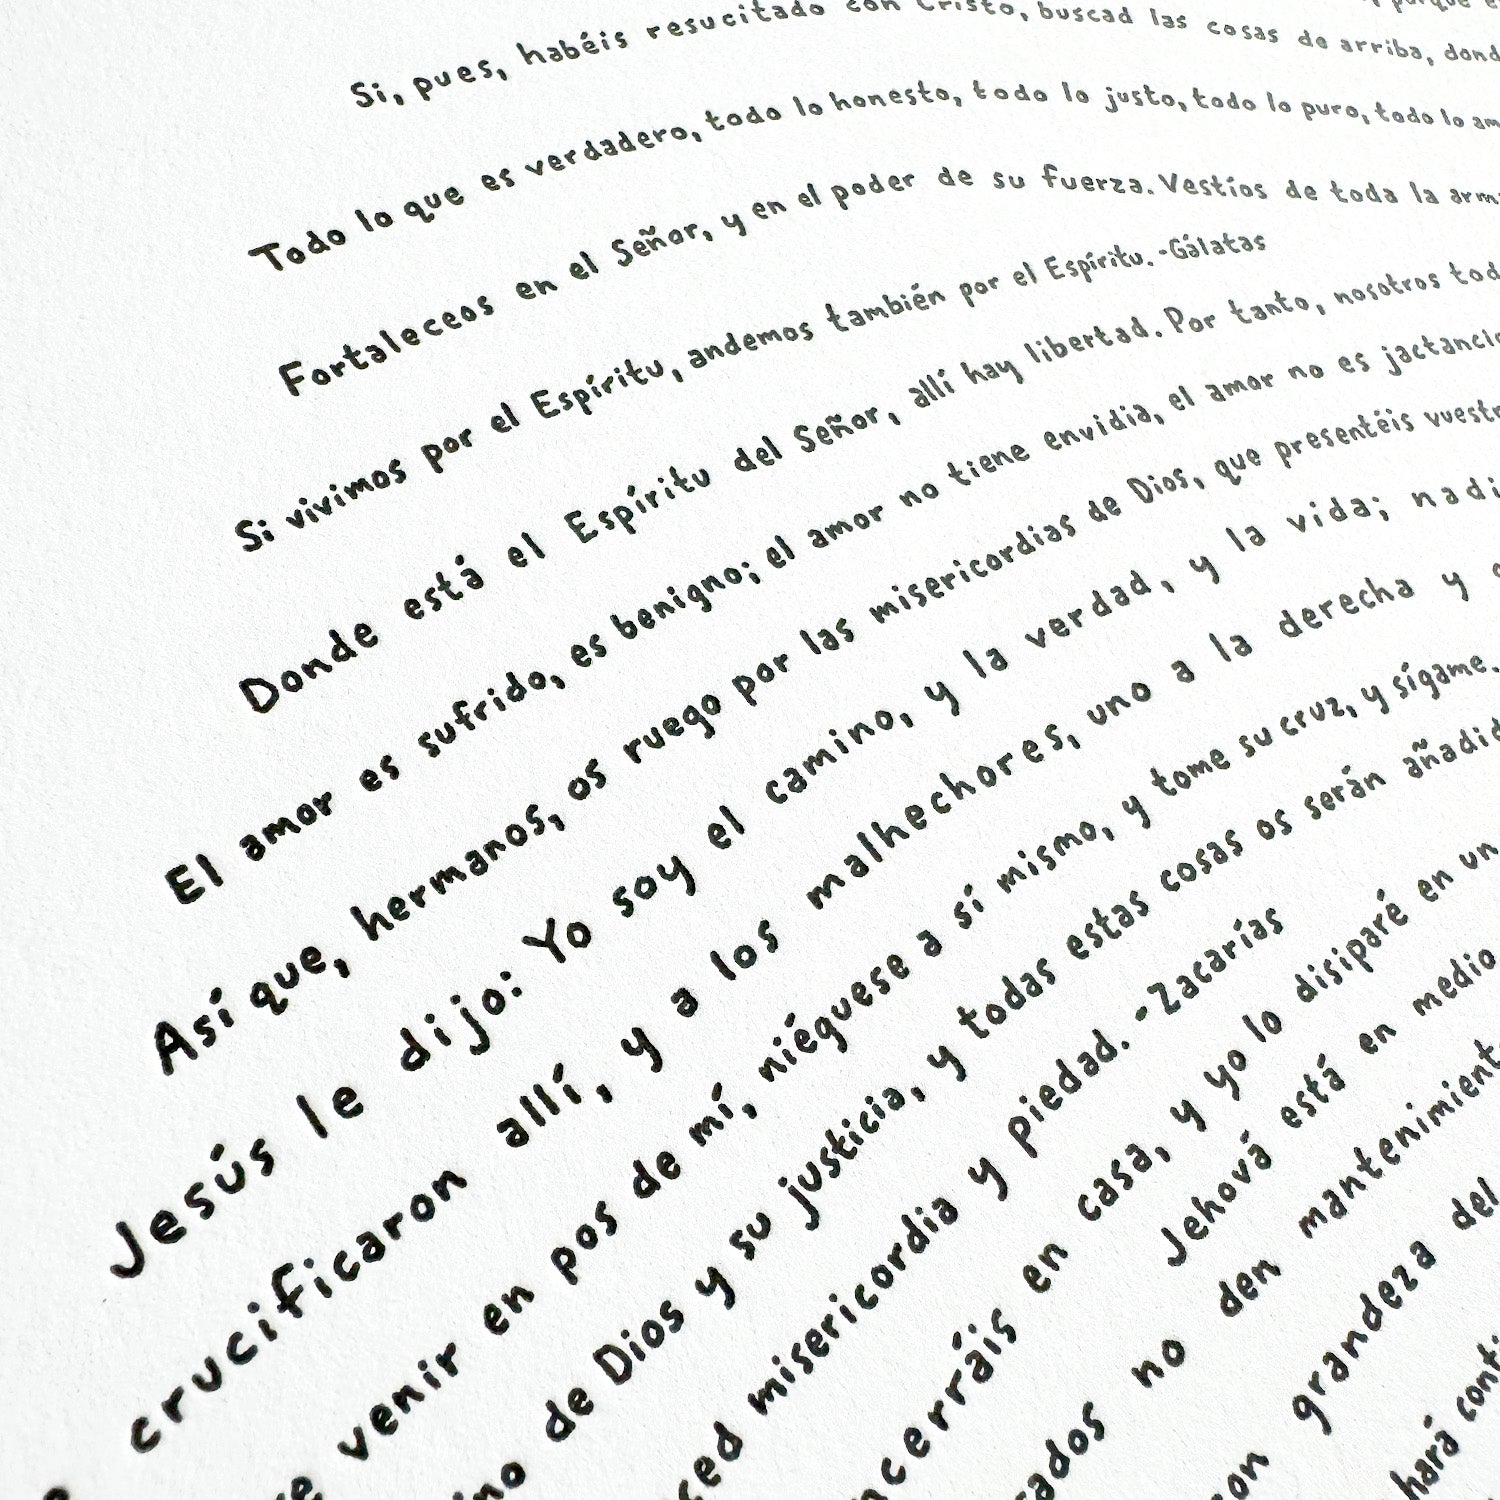 porque
Si, pues, habéis resucitado con Cristo, buscad las cosas de arriba,
Todo lo que es verdadero, todo lo honesto, todo lo justo, todo lo puro, todo lo
Fortaleceos en el Señor, y en el poder de su fuerza. Vestíos de toda la
Si vivimos por el Espíritu, andemos también por el Espíritu. -Gálatas
Donde está el Espíritu del Señor, allí hay libertad. Por tanto, nosotros
El amor es sufrido, es benigno; el amor no tiene envidia, el amor no es
Así que, hermanos, os ruego por las misericordias de Dios, que presentéis
Jesús le dijo: Yo soy el camino, y la verdad, y la vida;
crucificaron allí, y a los malhechores, uno a la derecha y
venir en pos de mí, niéguese a sí mismo, y tome su cruz, y sígame.
de Dios y su justicia, y todas estas cosas os serán
misericordia y piedad. -Zacarías
en casa, y yo lo disiparé en un
Jehová está en medio
no den
grandeza del
hará